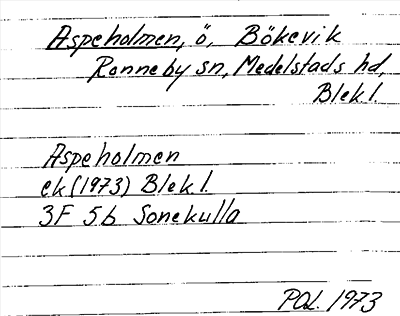 Aspeholmen, ö, Bökevik
Ronneby sn, Medelstads hd,
Blek.l.
Aspeholmen
ek (1973) Blek l.
3F 5b Sonekulla
POL. 1973